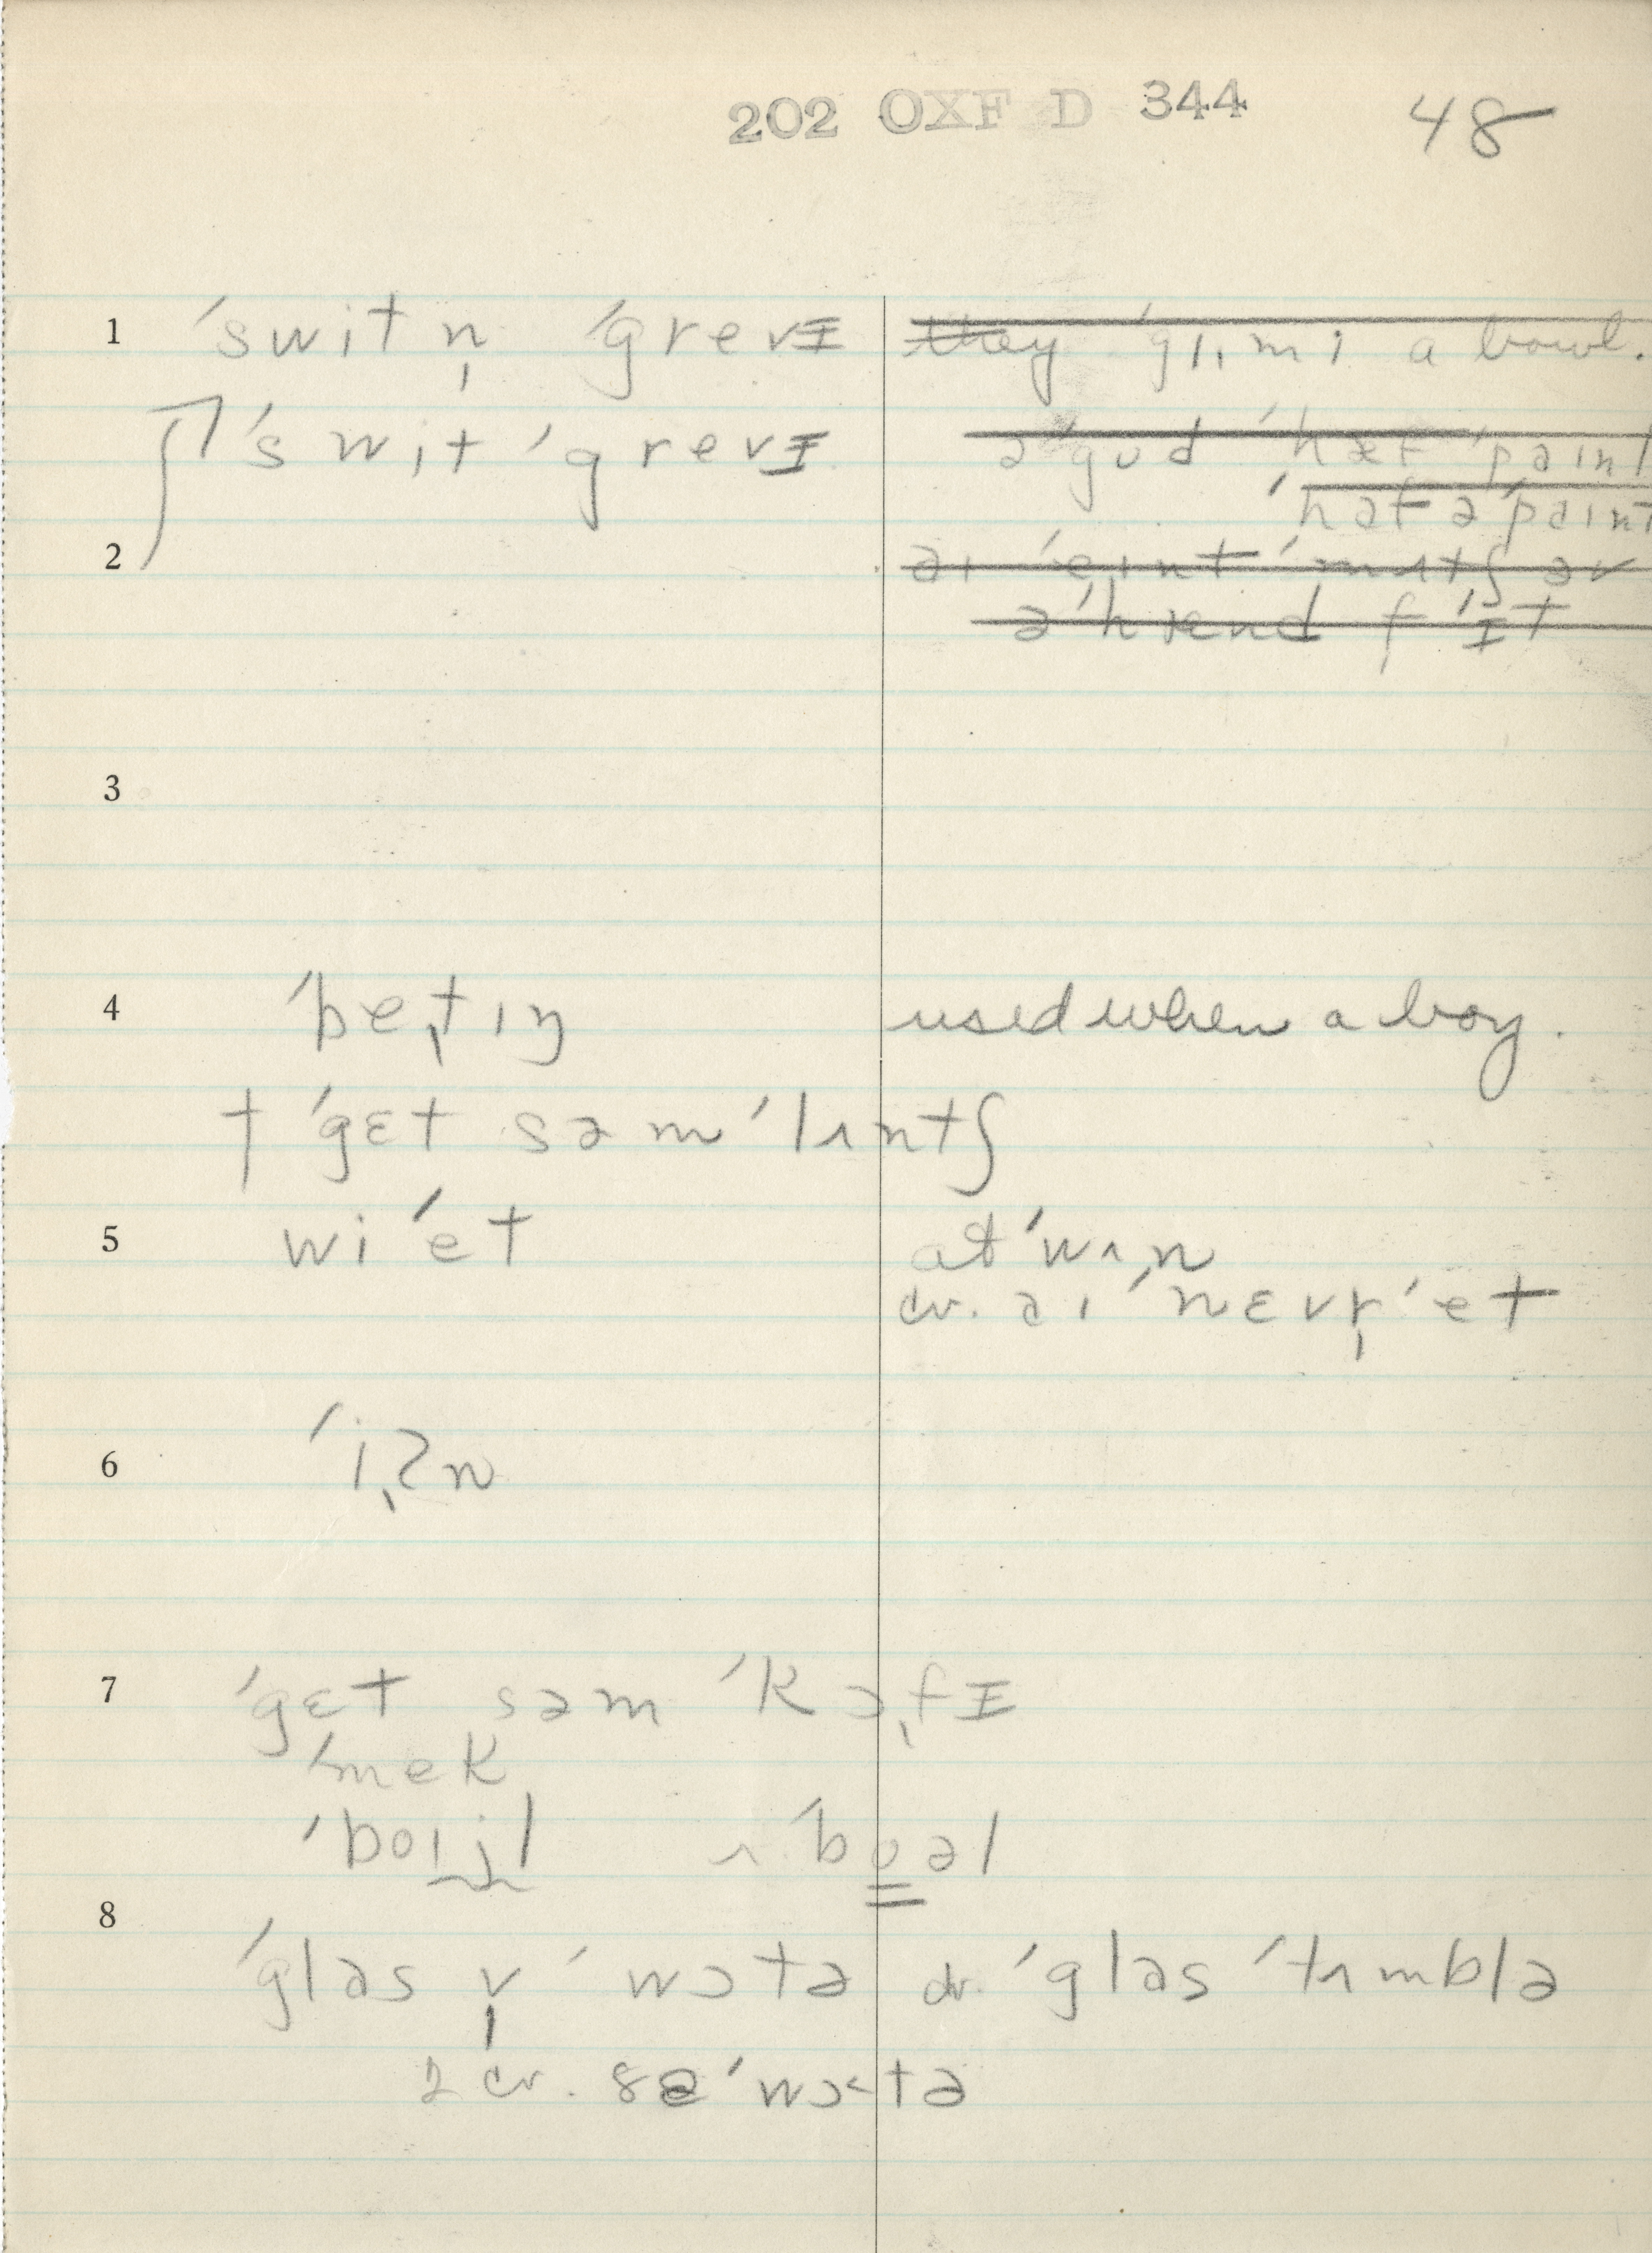 202 OXF D 344 48
1 ˈswitn̩ ˈgrevɪ they ˈgɪmi a bowl.
ˈswit ˈgrevɪ ə ˈgʊd ˈhæf ˈpaint
ˈhaf ə ˈpaint
2
ə ˈhænd f ɪt
3
4 ˈbetɪŋ used when a boy.
† ˈgɛt səm ˈlʌntʃ
5 wi ˈet at ˈwʌn
cv. aɪ ˈnɛvr̩ ˈet
6 ˈiʔn
7 ˈgɛt səm ˈkɔfɪ
ˈmek
ˈboɪjl ʌ ˈboəl
8
ˈglas v̩ ˈwɔtə cv. ˈglas ˈtʌmblə
2 cv. ðə ˈwɔtə